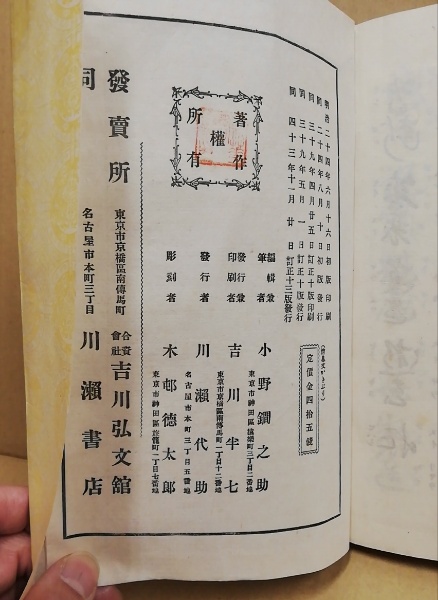 明治二十四年六月十六日初版印刷
同二十四年八月十日初版發行
同三十九年四月廿五日訂正十版印刷
同三十九年五月一日訂正十版發行
同四十三年十一月廿日訂正十三版發行
定價金四拾五錢
著作
權
所有
編輯兼
筆者
小野鐗之助
東京市神田區猿樂町三丁目二番地
發行兼
印刷者
吉川半七
東京市京橋區南傳馬町一丁目十二番地
發行者
川瀨代助
名古屋市本町三丁目五番地
彫刻者
木邨德太郎
東京市神田區
町一丁目七番地
發賣所
東京市京橋區南傳馬町
合資
會社
吉川弘文館
同
名古屋市本町三丁目
川瀨書店